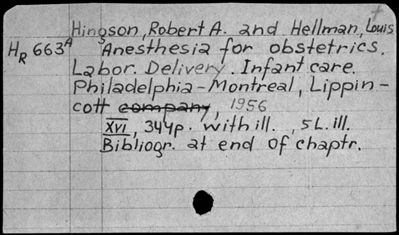 Hingson, Robert A. and Hellman, Louis
HR 663A Anesthesia for obstetrics.
Labor. Delivery. Infant care.
Philadelphia-Montreal, Lippin-
cott company, 1956
XVI, 344p. with ill., 5 L. ill.
Bibliogr. at end of chaptr.